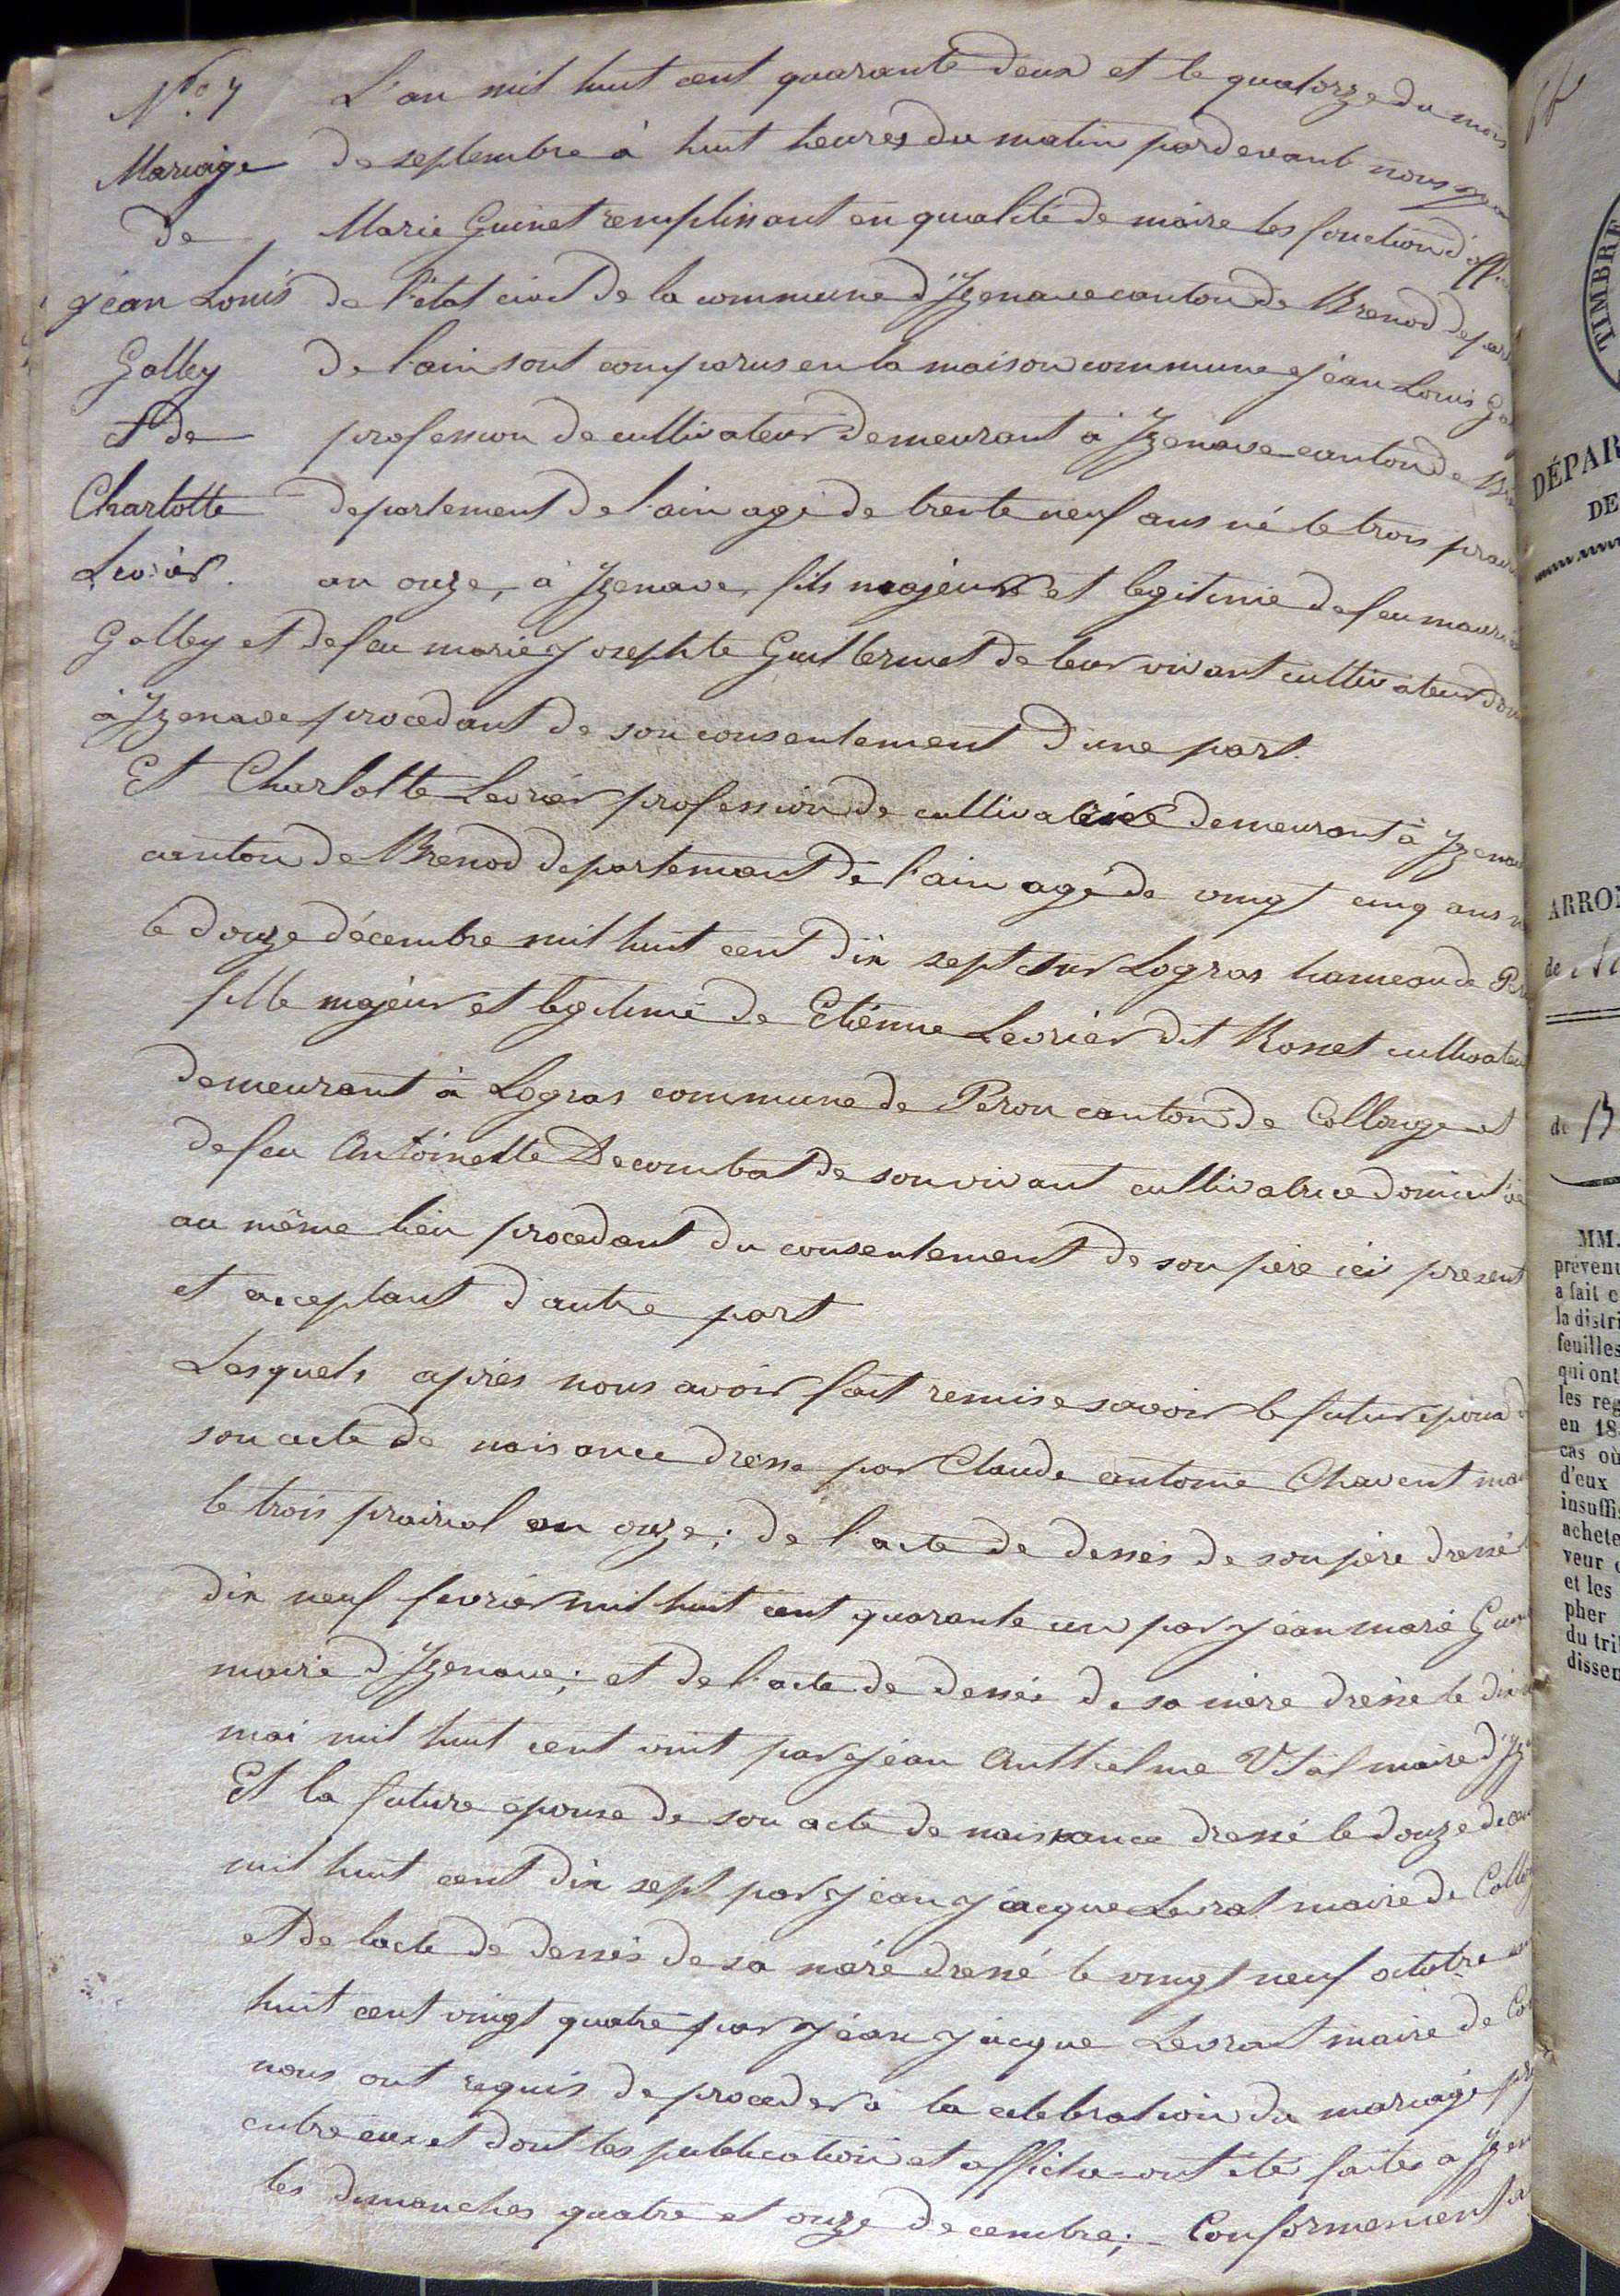 N.o 7
Mariage
de
jéan Louis
Galley
et de
Charlotte
Levrier.
L'an mil huit cent quarante deux et le quatorze du mois
de septembre à huit heures du matin pardevant nous
Marie Guinet remplissant en qualité de maire les fonction d'offici
de l'état civil de la commune d'Izenave canton de Brenod depart
de l'ain sont comparus en la maison commune jéan Louis Ga
profession de cultivateur demeurant à Izenave canton de Bre
departement de l'ain agé de trente neuf ans né le trois prair
an onze, à Izenave, fils majeur et legitime de feu mauri
Galley et de feu marie josephte Guillermet de leur vivant cultivateur dom
à Izenave procedant de son consentement d'une part.
Et Charlotte Levrier profession de cultivatrice demeurant à Izenav
canton de Brenod departement de l'ain agé de vingt cinq ans n
le douze décembre mil huit cent dix sept sur Logras hameau de Per
fille majeur et legitime de Etiénne Levrier dit Rosset cultivateu
demeurant à Logras commune de Peron canton de Collonge et
de feu Antoinette Decombat de son vivant cultivatrice domicilié
au même lieu procedant du consentement de son pére ici present
et acceptant d'autre part
Lesquels aprés nous avoir fait remise savoir le futur époux d
son acte de naisance dressé par Claude antoine Chavent mai
le trois prairial an onze; de l'acte de dessés de son pére dressé l
dix neuf fevrier mil huit cent quarante un par jéan marie Guin
maire d'Izenave; et de l'acte de dessés de sa mére dressé le dix
mai mil huit cent vint par jéan Anthelme Vital maire d'Iz
Et la future épouse de son acte de naissance dressé le douze decem
mil huit cent dix sept par jéan jacque Levrat maire de Collo
et de lacte de dessés de sa mére dressé le vingt neuf octobre
huit cent vingt quatre par jéan jacque Levrat maire de Co
nous ont requis de proceder à la celebration du mariage pr
entre eux et dont les publication et affiche ont étés faites a Izen
les dimanches quatre et onze decembre; Conformement a
TIMBRE
DÉPAR
DE
ARRON
de
de B
MM.
prévenu
a fait c
la distri
feuilles
qui ont
les reg
en 18
cas où
d'eux
insuffis
achete
veur
et les
pher
du tri
dissen